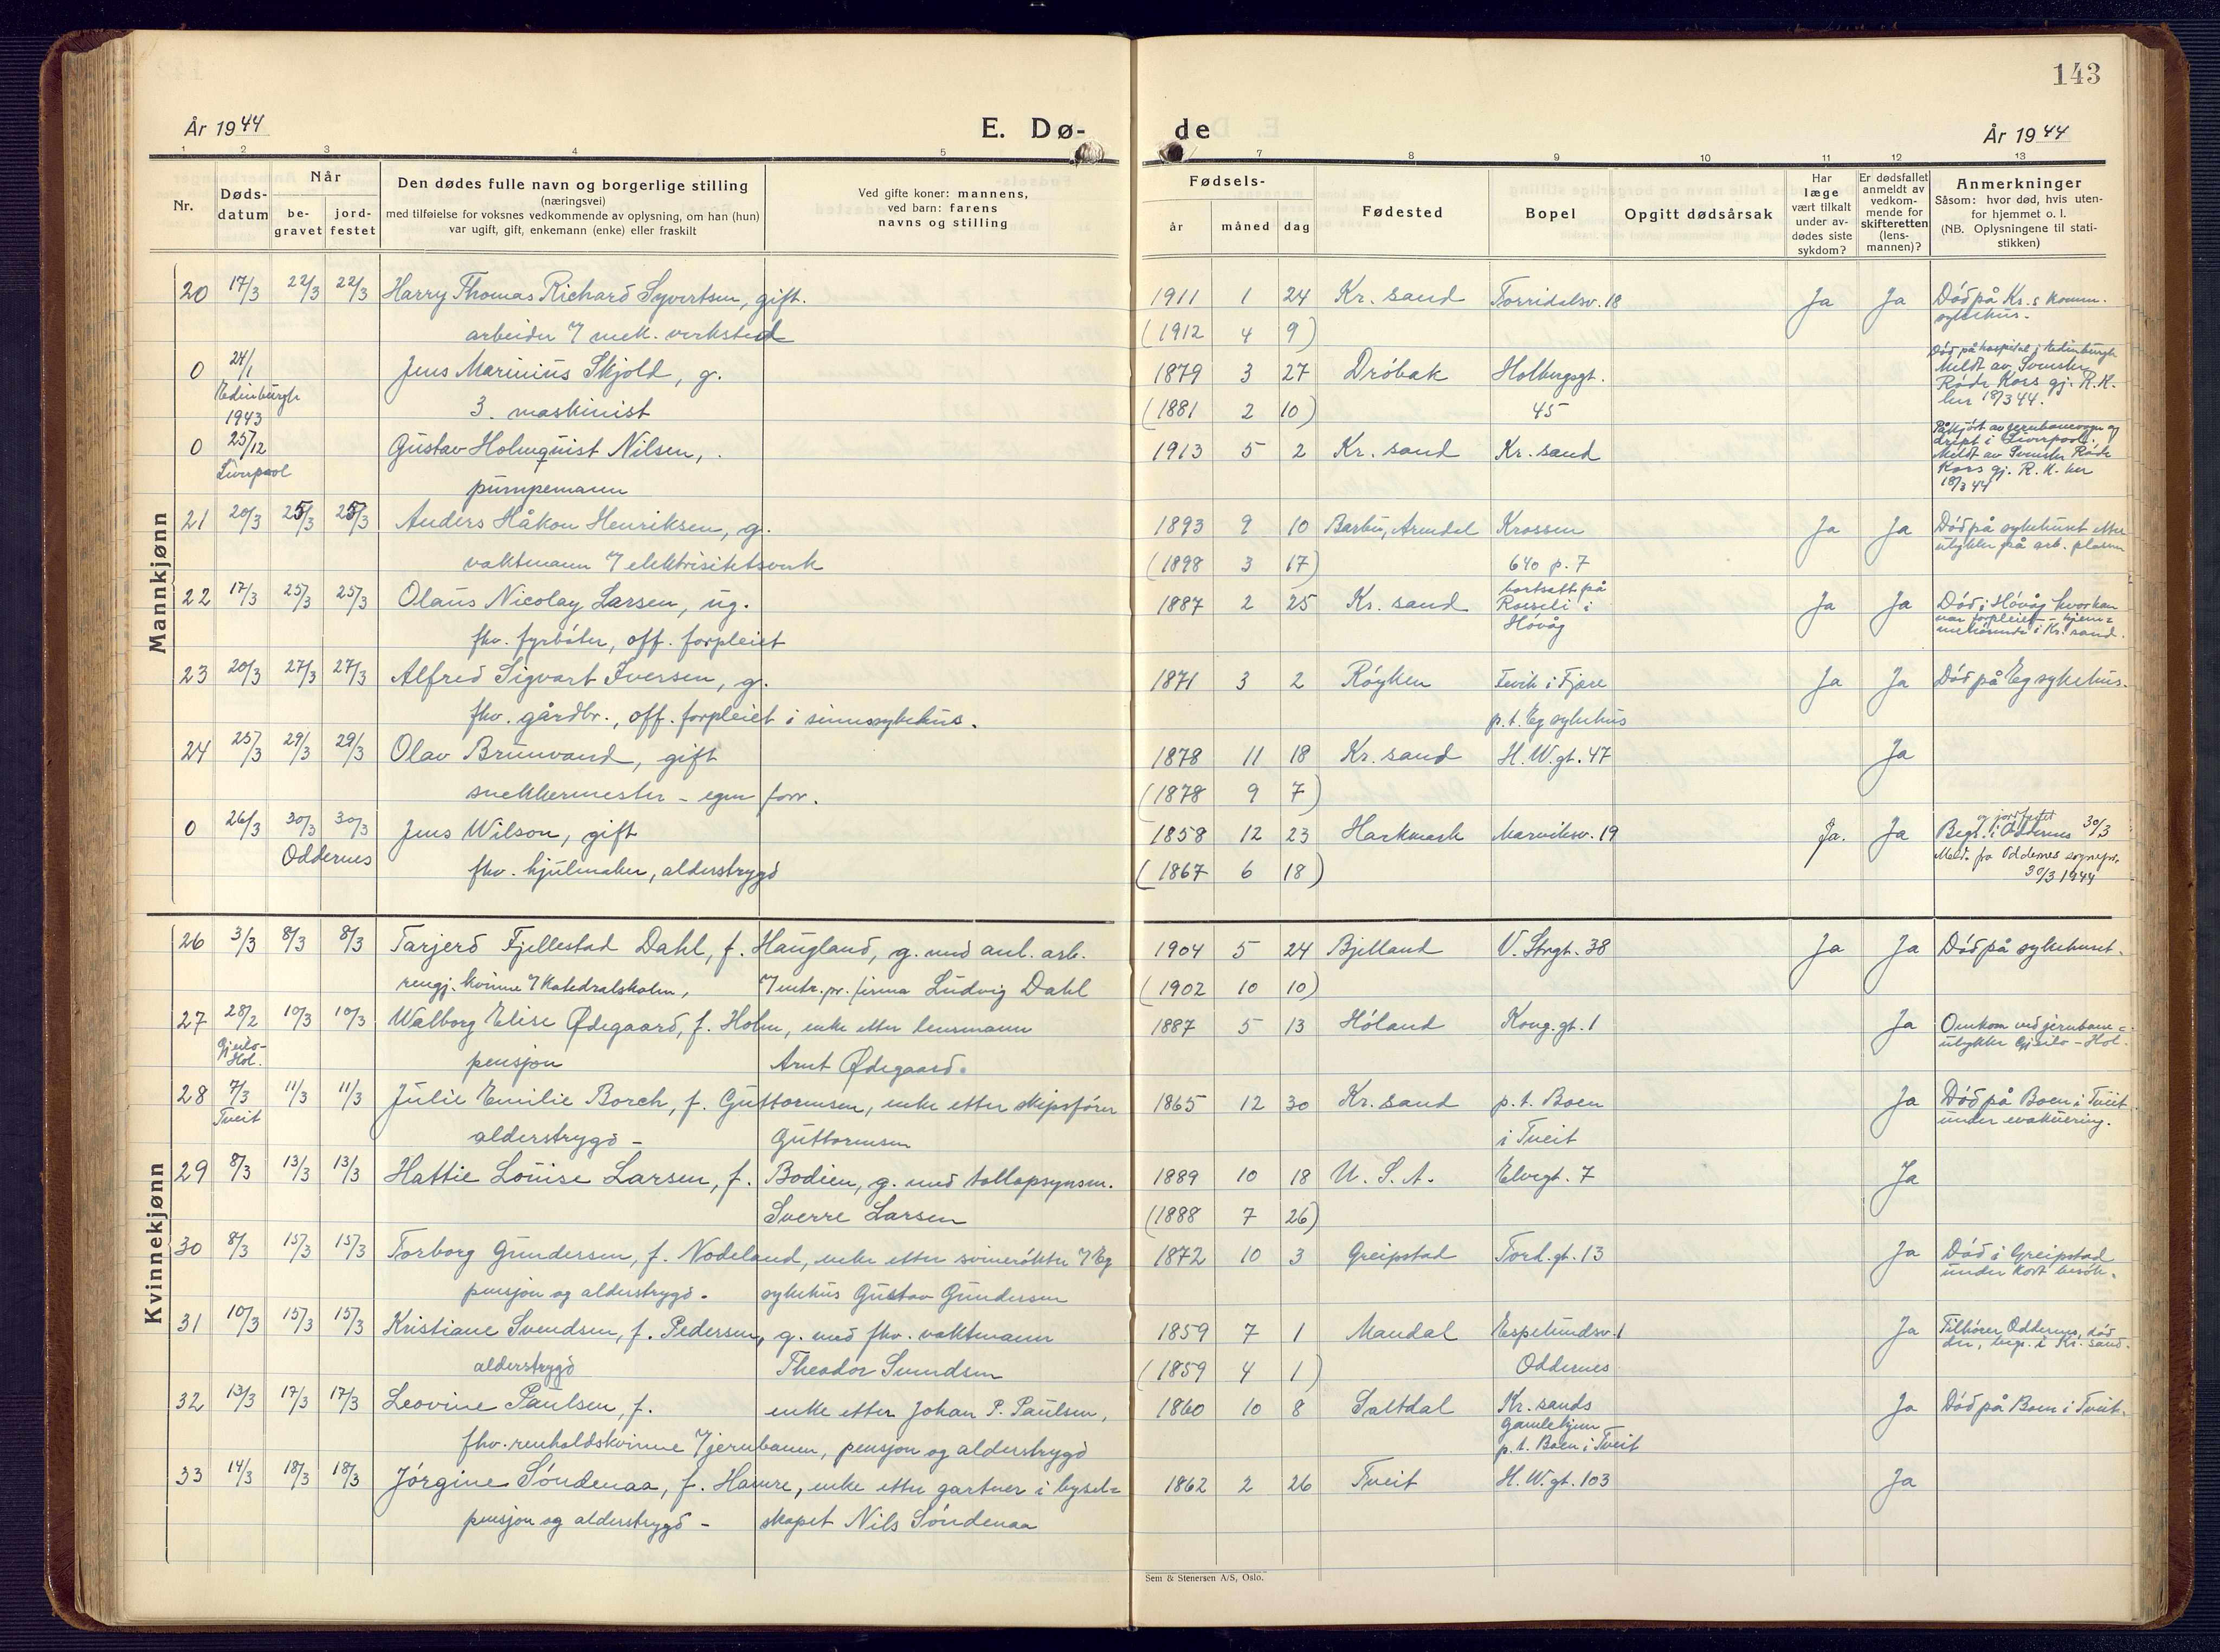 143
År 1944
E. Dø-
de
År 1944
1 2 3 4 5
7 8 9 10 11 12 13
Nr.
Døds-
datum
Når
be-
gravet
jord-
festet
Den dødes fulle navn og borgerlige stilling
(næringsvei)
med tilføielse for voksnes vedkommende av oplysning, om han (hun)
var ugift, gift, enkemann (enke) eller fraskilt
Ved gifte koner: mannens,
ved barn: farens
navns og stilling
Fødsels-
år måned dag
Fødested
Bopel
Opgitt dødsårsak
Har
læge
vært tilkalt
under av-
dødes siste
sykdom?
Er dødsfallet
anmeldt av
vedkom-
mende for
skifteretten
(lens-
mannen)?
Anmerkninger
Såsom: hvor død, hvis uten-
for hjemmet o. l.
(NB. Oplysningene til stati-
stikken)
Mannkjønn
20 17/3 22/3 22/3 Harry Thomas Richard Syvertsen, gift. 1911 1 24 Kr. sand Torridalsv. 18 Ja Ja Död på Kr.s komm.
sykehus.
arbeider v/ mek. verksted (1912 4 9)
0 24/1 Jens Marinius Skjold, g. 1879 3 27 Dröbak Holbergsgt. Död på hospital i Edinburgh
Edinburgh Meldt av Svenske
Röde Kors gj. R.K.
her 18/3 44.
3. maskinist (1881 2 10) 45
1943
0 25/12 Gustav Holmquist Nilsen, 1913 5 2 Kr. sand Kr. sand Påkjört av jernbanevogn og
drept i Liverpool.
Liverpool Meldt av Svenske Röde
Kors gj. R. K. her
18/3 44
pumpemann
21 20/3 25/3 25/3 Anders Håkon Henriksen, g. 1893 9 10 Barbu, Arendal Krossen Ja Ja Död på sykehuset etter
ulykke på arb. plassen
vaktmann v/ elektrisitetsverk (1898 3 17) 640 p. 7
22 17/3 25/3 25/3 Olaus Nicolay Larsen, ug. 1887 2 25 Kr. sand bortsatt på
i
Hövåg Ja Ja Död i Hövåg hvor han
var forpleiet - hjem=
mehörende i Kr. sand.
fhv. fyrböter, off. forpleiet
23 20/3 27/3 27/3 Alfred Sigvart Iversen, g. 1871 3 2 Röyken Fevik i Fjære Ja Ja Död på Eg sykehus.
fhv. gårdbr., off. forpleiet i sinnssykehus. p.t. Eg sykehus
24 25/3 29/3 29/3 Olav Brunvand, gift 1878 11 18 Kr. sand H. W. gt. 47 Ja
snekkermester - egen forr. (1878 9 7)
0 26/3 30/3 30/3 Jens Wilson, gift 1858 12 23 Harkmark Marviksv. 19 Ja. Ja og jordfestet
Begr. i Oddernes 30/3
Oddernes Meld. fra Oddernes sognepr.
30/3 1944
fhv. hjulmaker, alderstrygd (1867 6 18)
Kvinnekjønn
26 3/3 8/3 8/3 Tarjerd Fjellestad Dahl, f. Haugland, g. med anl. arb. 1904 5 24 Bjelland V. Strgt. 38 Ja Ja Död på sykehuset.
rengj. kvinne v/ Katedralskolen, v/ entr. pr. firma Ludvig Dahl (1902 10 10)
27 28/2 10/3 10/3 Walborg Elise Ødegaard, f. Holm, enke etter lensmann 1887 5 13 Höland Kong. gt. 1 Ja Omkom ved jernbane=
ulykke Gjeilo - Hol.
Gjeilo-
Hol.
pensjon Arnt Ødegaard.
28 7/3 11/3 11/3 Julie Emilie Borch, f. Guttormsen, enke etter skipsförer 1865 12 30 Kr. sand p.t. Boen Ja Död på Boen i Tveit
under evakuering.
Tveit alderstrygd - Guttormsen i Tveit
29 8/3 13/3 13/3 Hattie Louise Larsen, f. Bodien, g. med tollopsynsm. 1889 10 18 U. S. A. Elvegt. 7 Ja
Sverre Larsen (1888 7 26)
30 8/3 15/3 15/3 Torborg Gundersen, f. Nodeland, enke etter svinerökter v/ Eg 1872 10 3 Greipstad Tord. gt. 13 Ja Död i Greipstad
under kort besök.
pensjon og alderstrygd. sykehus Gustav Gundersen
31 10/3 15/3 15/3 Kristiane Svendsen, f. Pedersen, g. med fhv. vaktmann 1859 7 1 Mandal Espelundsv. 1 Ja Tilhörer Oddernes, död
der, begr. i Kr. sand.
alderstrygd Theodor Svendsen (1859 4 1) Oddernes
32 13/3 17/3 17/3 Leovine Paulsen, f. enke etter Johan P. Paulsen, 1860 10 8 Saltdal Kr. sands
Gamlehjem -
p.t. Boen i Tveit Ja Död på Boen i Tveit.
fhv. renholdskvinne v/ jernbanen, pensjon og alderstrygd
33 14/3 18/3 18/3 Jörgine Söndenaa, f. Hamre, enke etter gartner i bysel= 1862 2 26 Tveit H. W. gt. 103 Ja
pensjon og alderstrygd - skapet Nils Söndenaa
Sem & Stenersen A/S, Oslo.